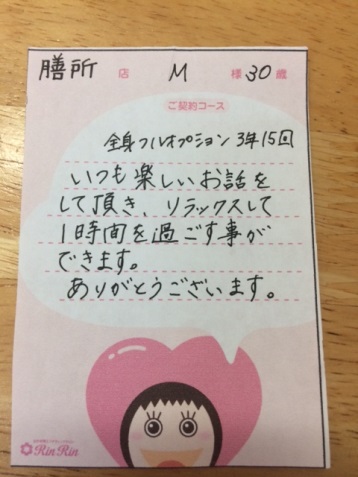 膳所 店 M 様 30 歳
ご契約コース
全身フルオプション 3年15回
いつも楽しいお話を
して頂き、リラックスして
1時間を過ごす事が
できます。
ありがとうございます。
RinRin